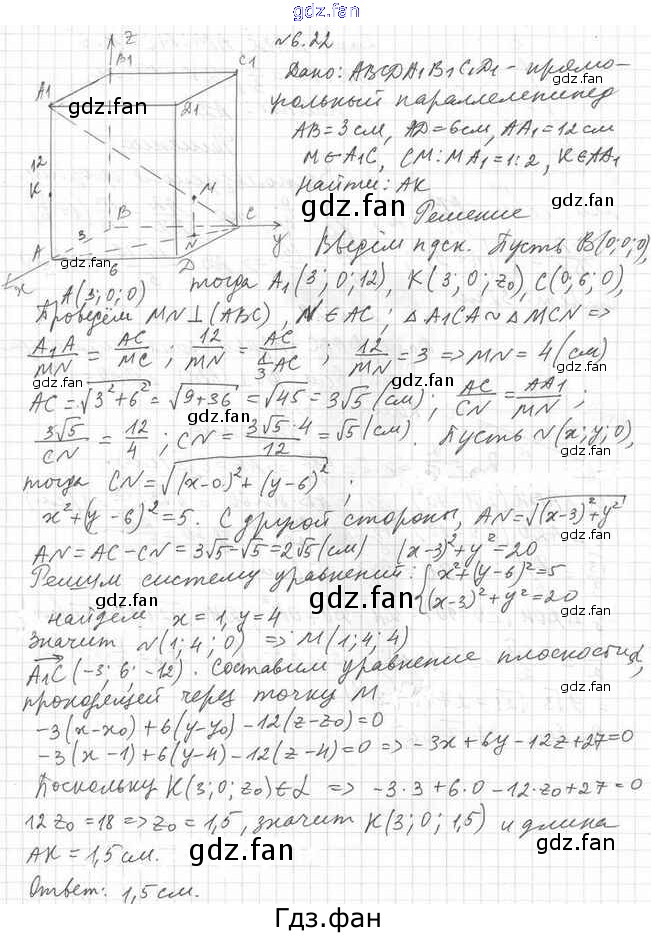 gdz.fan
№6.22
Дано: ABCDA1B1C1D1 - прямо-
угольный параллелепипед
AB=3см, AD=6см, AA1=12см
M∈A1C, CM:MA1=1:2, K∈AA1
Найти: AK
gdz.fan
Решение
z
B1
C1
A1
D1
gdz.fan
12
K
M
B
C
3
N
y
A
6
D
x
A(3;0;0)
Введём пдск. Пусть B(0;0;0),
тогда A1(3;0;12), K(3;0;z0), C(0;6;0),
Проведём MN⊥(ABC), N∈AC; △A1CA∼△MCN =>
A1A/MN = AC/MC; 12/MN = AC/(1/3 AC); 12/MN = 3 => MN = 4(см)
AC=√(3²+6²)=√(9+36)=√45=3√5(см); AC/CN = AA1/MN;
3√5/CN = 12/4; CN = 3√5·4/12 = √5(см). Пусть N(x;y;0),
тогда CN=√((x-0)²+(y-6)²);
x²+(y-6)²=5. С другой стороны, AN=√((x-3)²+y²)
AN=AC-CN=3√5-√5=2√5(см) (x-3)²+y²=20
Решим систему уравнений: {x²+(y-6)²=5
{(x-3)²+y²=20
найдем x=1, y=4
Значит N(1;4;0) => M(1;4;4)
A1C(-3;6;-12). Составим уравнение плоскости α,
проходящей через точку M
-3(x-x0)+6(y-y0)-12(z-z0)=0
-3(x-1)+6(y-4)-12(z-4)=0 => -3x+6y-12z+27=0
Поскольку K(3;0;z0)∈α => -3·3+6·0-12·z0+27=0
12z0=18 => z0=1,5, значит K(3;0;1,5) и длина
AK=1,5см.
gdz.fan
Ответ: 1,5см.
Гдз.фан